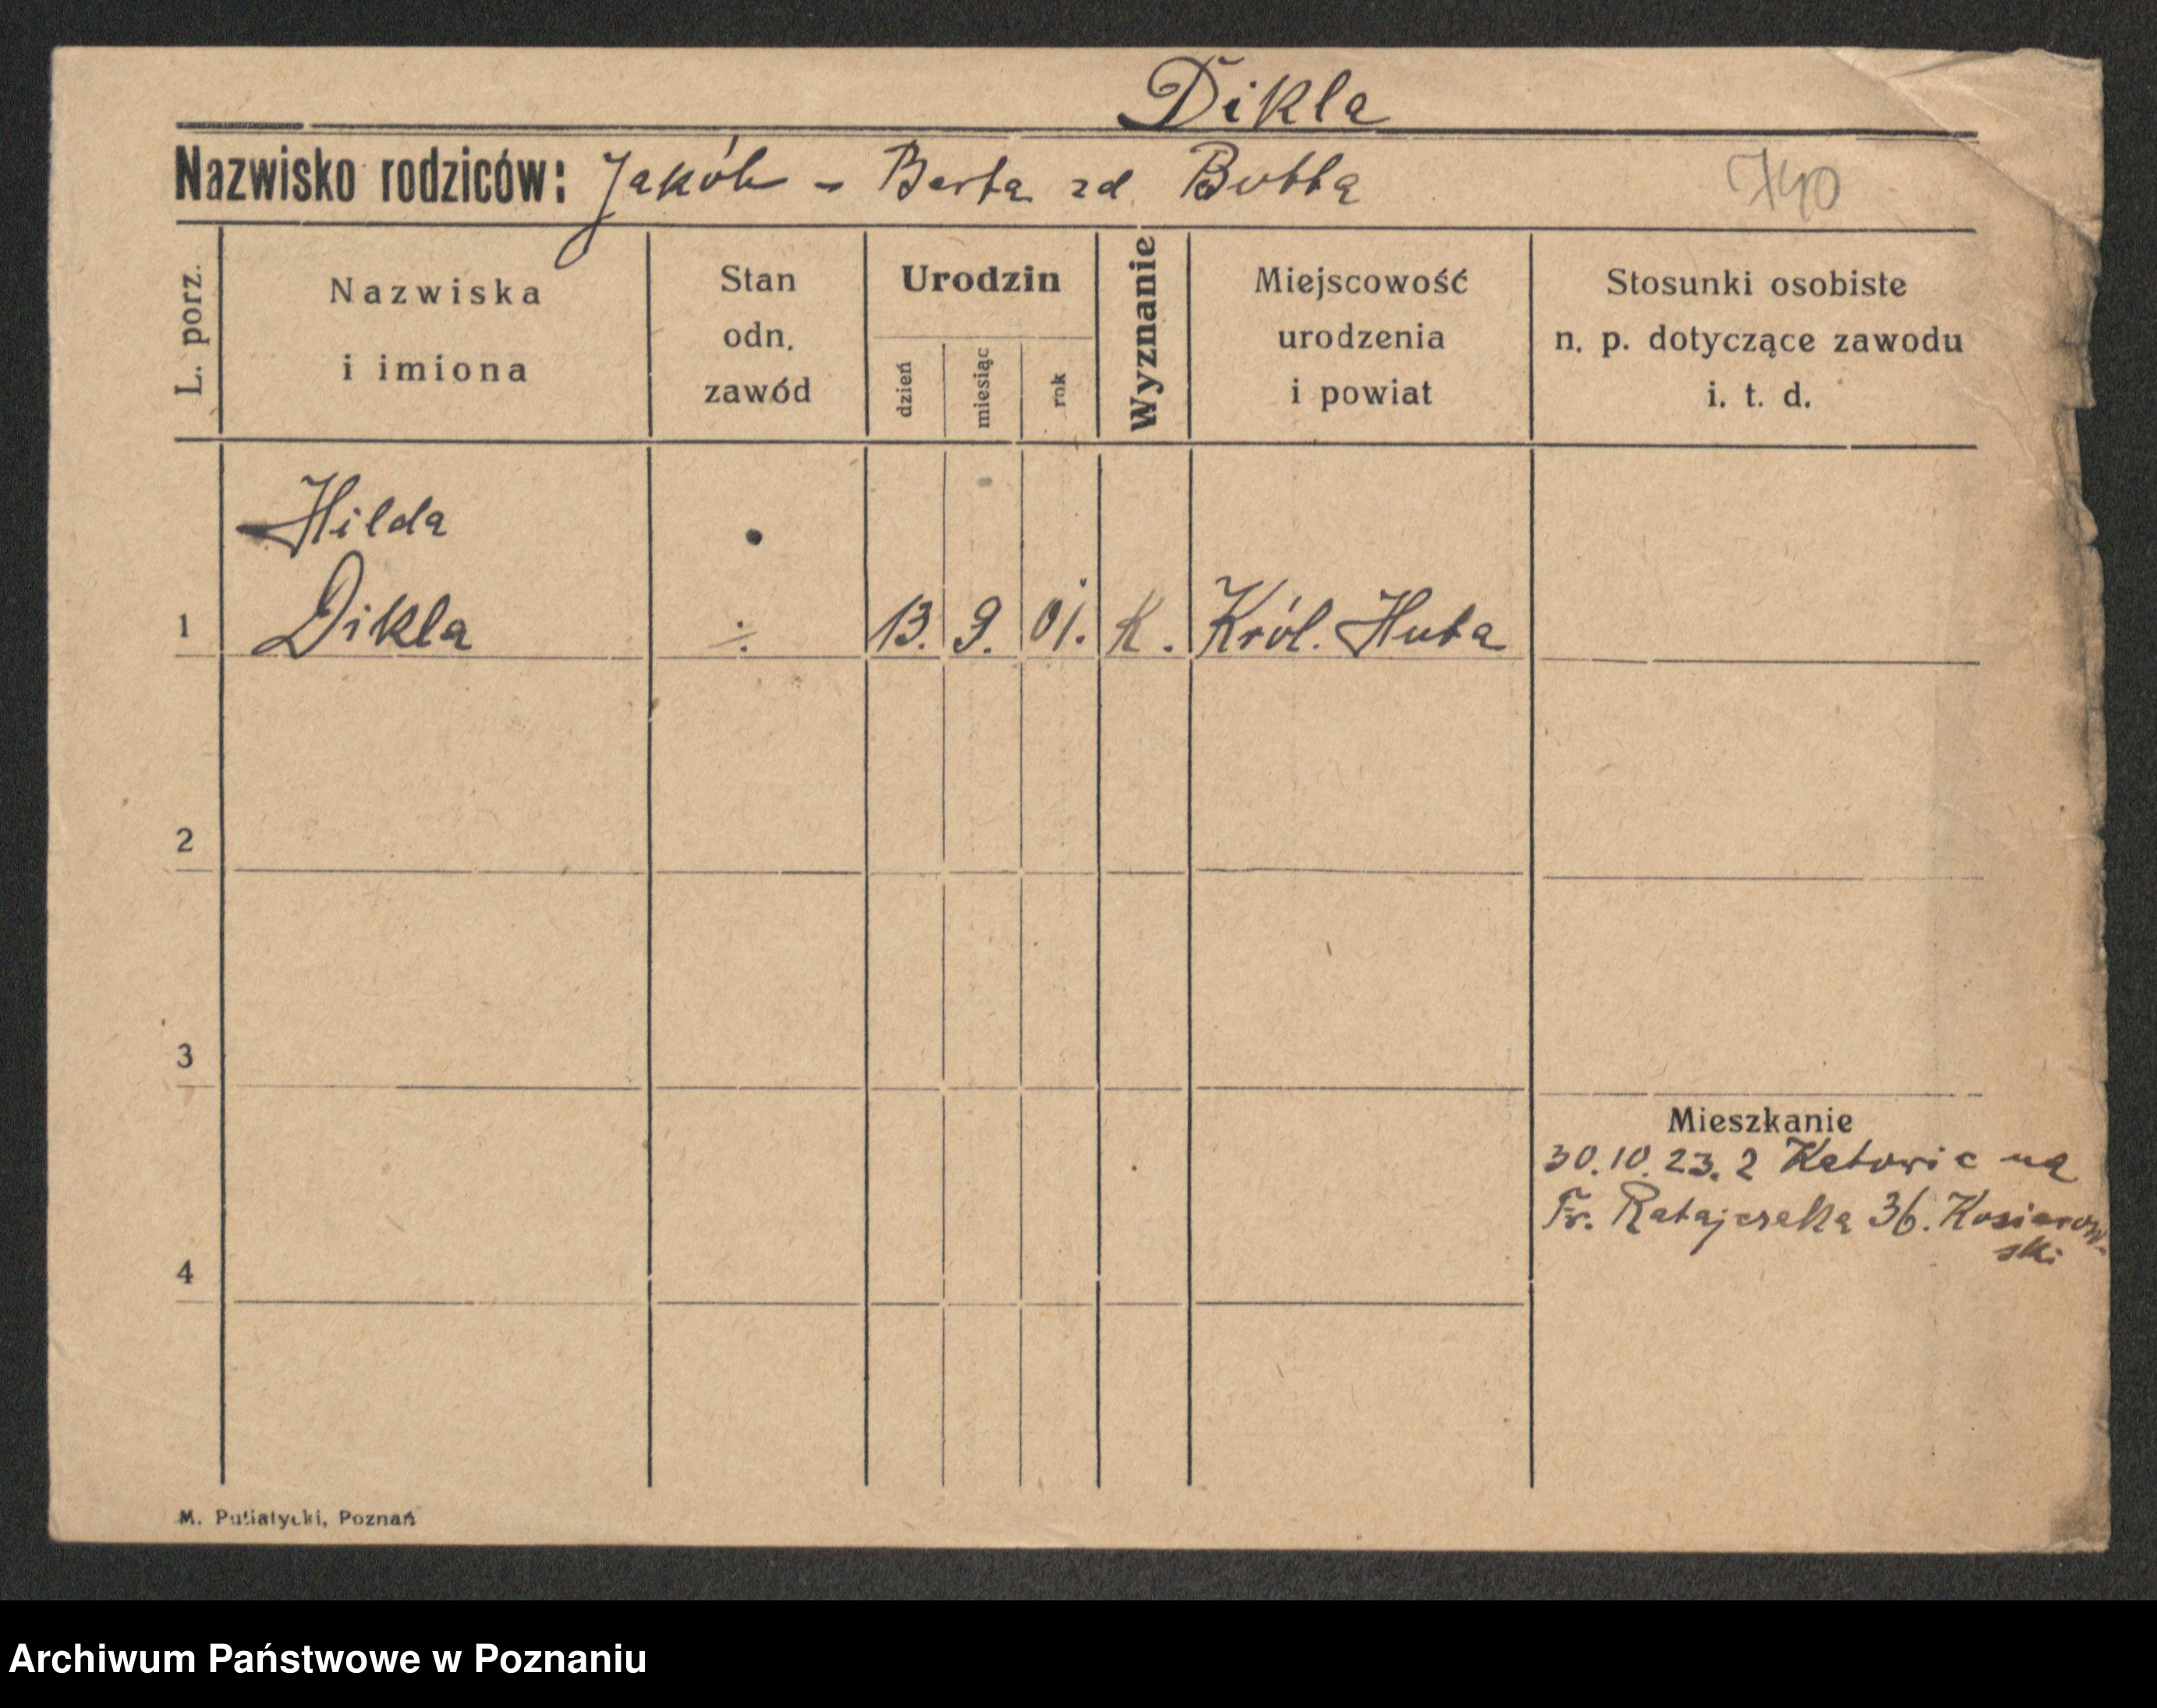 Dikla
Nazwisko rodziców: Jakób - Berta zd. Bubła
740
L. porz. Nazwiska i imiona Stan odn. zawód Urodzin dzień miesiąc rok Wyznanie Miejscowość urodzenia i powiat Stosunki osobiste n. p. dotyczące zawodu i. t. d.
Hilda
1 Dikla ÷ 13. 9. 01. K. Król. Huta
2
3
Mieszkanie
30.10.23. z Katowic na
Fr. Ratajczaka 36. Kosiarow-
ski
4
M. Putiatycki, Poznań
Archiwum Państwowe w Poznaniu